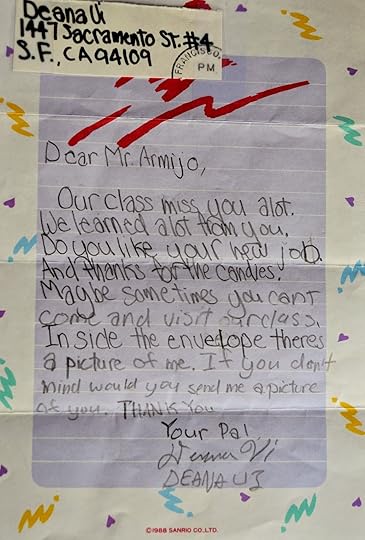 Deana Ui
1447 Sacramento St. #4
S.F., CA 94109
FRANCISCO,
PM
Dear Mr. Armijo,
Our class miss you alot.
We learned alot from you.
Do you like your new job.
And thanks for the candies.
Maybe sometimes you can't
come and visit ourclass.
In side the envelope theres
a picture of me. If you don't
mind would you send me a picture
of you. THANK YOU
Your Pal,
DEANA UI
©1988 SANRIO CO., LTD.